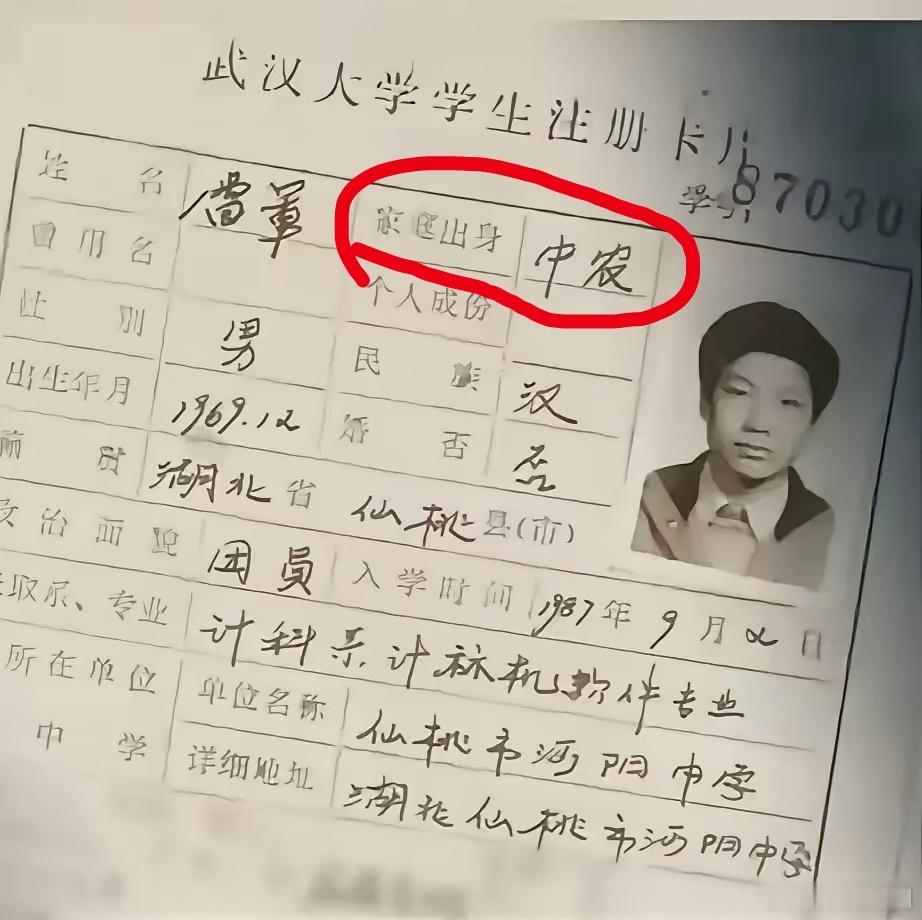 武汉大学学生注册卡片
学号 87030
姓名 雷军 家庭出身 中农
曾用名 个人成份
性别 男 民族 汉
出生年月 1969.12 婚否 否
湖北省 仙桃县(市)
政治面貌 团员 入学时间 1987年9月2日
取系、专业 计科系计标机软件专业
所在单位 单位名称 仙桃市沔阳中学
中学 详细地址 湖北仙桃市沔阳中学